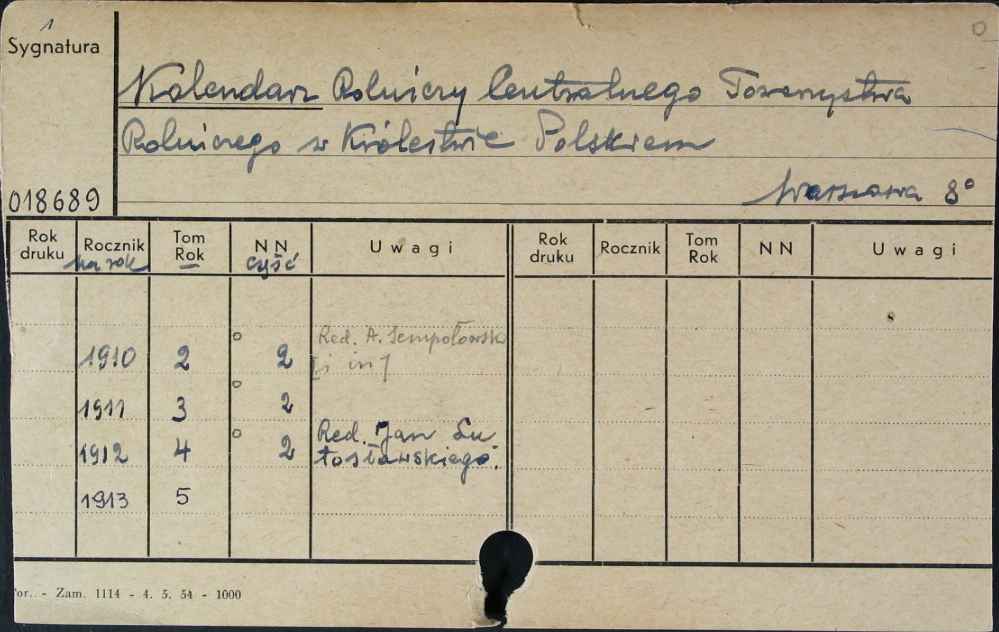 1
Sygnatura
Kalendarz Rolniczy Centralnego Towarzystwa
Rolniczego w Królestwie Polskiem
Warszawa 8°
018689
Rok druku Rocznik na rok Tom Rok NN część Uwagi Rok druku Rocznik Tom Rok NN Uwagi
1910 2 ° 2 Red. A. Sempołowski
[i in]
1911 3 ° 2
1912 4 ° 2 Red. Jan Lu
tosławskiego.
1913 5
or. - Zam. 1114 - 4. 5. 54 - 1000